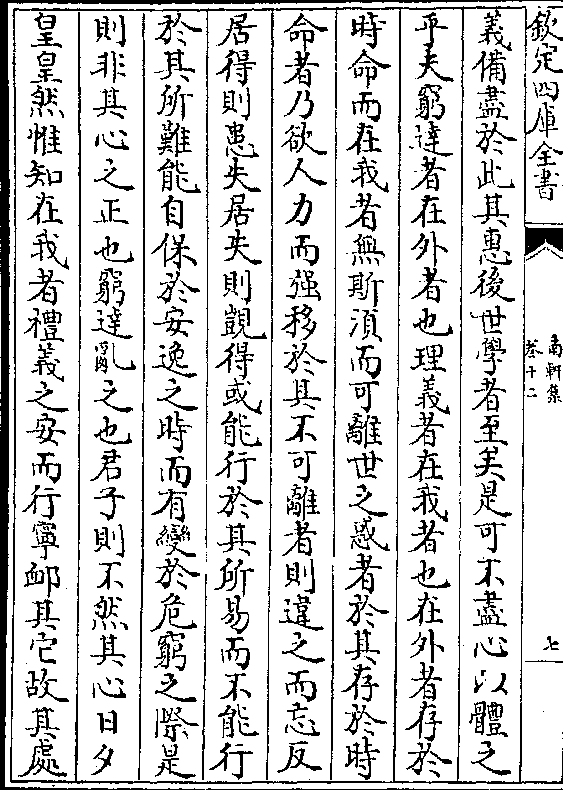 欽定四庫全書
南軒集
卷十二
七
義備盡於此其惠後世學者至矣是可不盡心以體之
乎夫窮達者在外者也理義者在我者也在外者存於
時命而在我者無斯須而可離世之惑者於其存於時
命者乃欲人力而强移於其不可離者則違之而忘反
居得則患失居失則覬得或能行於其所易而不能行
於其所難能自保於安逸之時而有變於危窮之際是
則非其心之正也窮達亂之也君子則不然其心日夕
皇皇然惟知在我者禮義之安而行寧䘏其它故其處